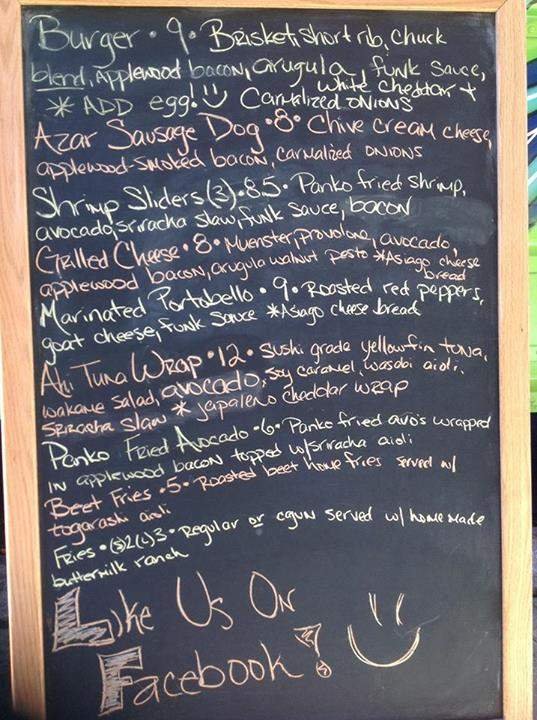 Burger • 9 • Brisket, short rib, chuck
blend, Applewood bacon, arugula, funk sauce,
white cheddar +
* ADD egg! Carmalized onions
Azar Sausage Dog • 8 • Chive cream cheese,
applewood-smoked bacon, carmalized onions
Shrimp Sliders (3) • 8.5 • Panko fried shrimp,
avocado, sriracha slaw, funk sauce, bacon
Grilled Cheese • 8 • Muenster, provolone, avocado,
applewood bacon, arugula walnut pesto *Asiago cheese
bread
Marinated Portobello • 9 • Roasted red peppers,
goat cheese, funk sauce *Asiago cheese bread
Ahi Tuna Wrap • 12 • Sushi grade yellowfin tuna,
wakame salad, avocado, soy caramel, wasabi aioli,
sriracha slaw * jalapeno cheddar wrap
Panko Fried Avocado • 6 • Panko fried avo's wrapped
in applewood bacon topped w/sriracha aioli
Beet Fries • 5 • Roasted beet home fries served w/
togarashi aioli
Fries • (s)2 (L)3 • Regular or cajun served w/ home made
buttermilk ranch
Like Us On
Facebook!